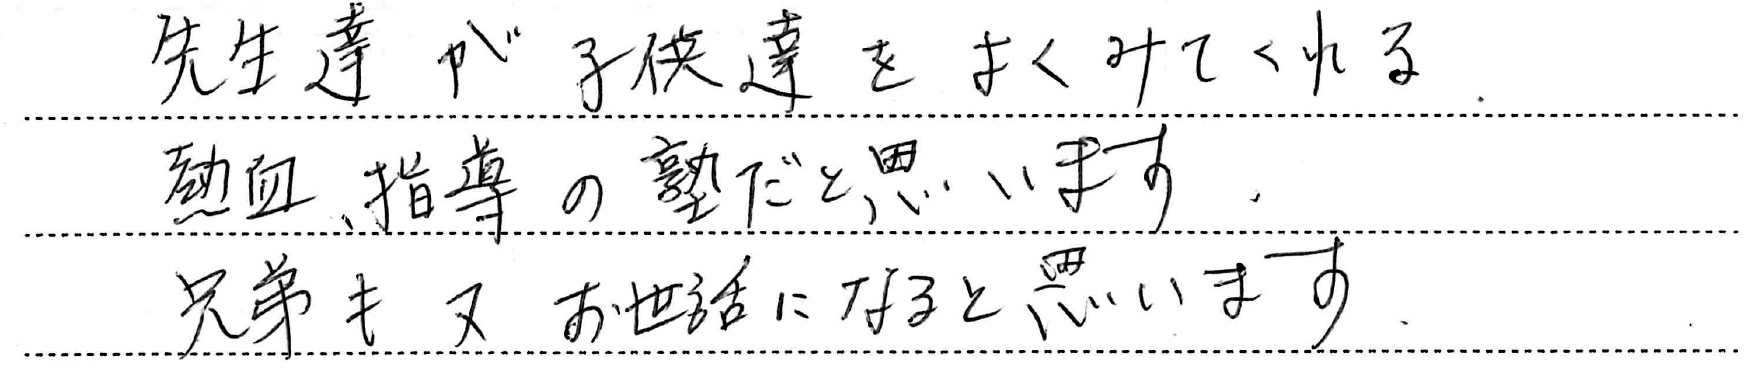 先生達が子供達をよくみてくれる.
熱血、指導の塾だと思います.
兄弟も又お世話になると思います.